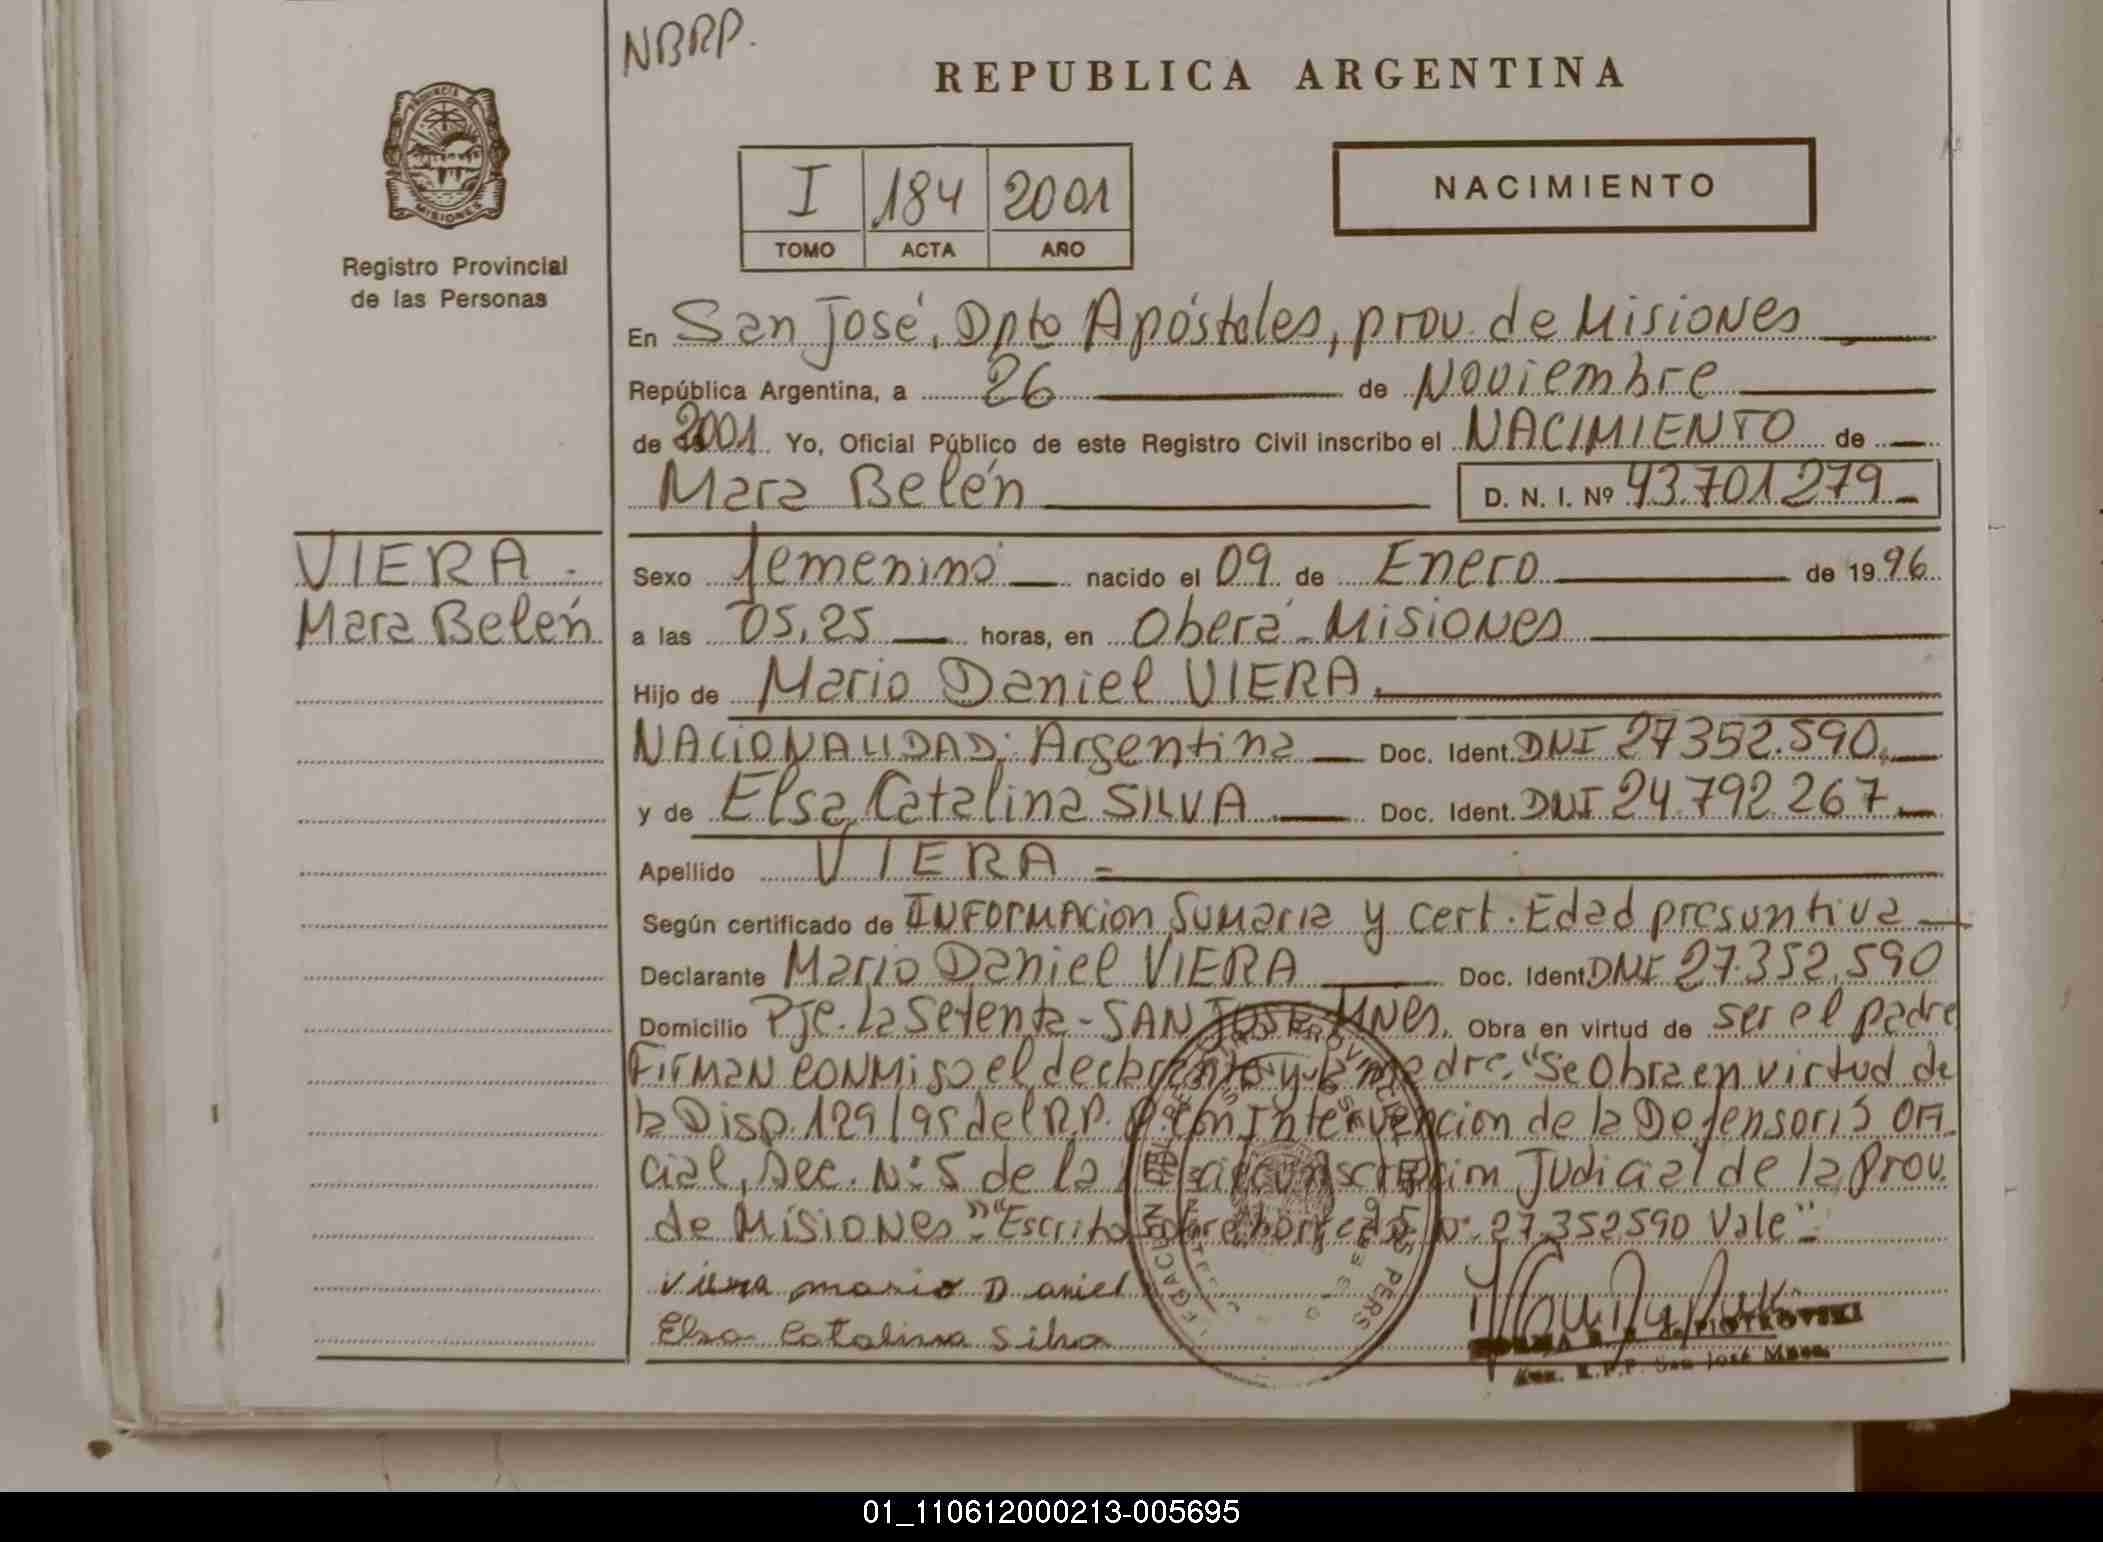 NBRP.
REPUBLICA ARGENTINA
PROVINCIA DE MISIONES
I 184 2001
TOMO ACTA AÑO
NACIMIENTO
Registro Provincial
de las Personas
En San José, Dpto Apóstoles, prov. de Misiones
República Argentina, a 26 de Noviembre
de 2001 Yo, Oficial Público de este Registro Civil inscribo el NACIMIENTO de
Mara Belén D. N. I. Nº 93.701279
VIERA.
Mara Belén
Sexo femenino nacido el 09 de Enero de 1996
a las 05,25 horas, en Oberá - Misiones
Hijo de Mario Daniel VIERA
NACIONALIDAD: Argentina Doc. Ident. DNI 27352.590.
y de Elsa Catalina SILVA Doc. Ident. DNI 24.792.267
Apellido VIERA
Según certificado de INFORMAcion Sumaria y cert. Edad presuntiva
Declarante Mario Daniel VIERA Doc. Ident. DNI 27.352.590
Domicilio Pje. La Setenta - SAN JOSE - MNes. Obra en virtud de ser el padre
Firman conmigo el declarante y la madre. "Se Obra en virtud de
la Disp. 129/95 del R.P. P. con Intervencion de la Defensoria Ofi
cial, Sec. Nº 5 de la circunscripcion Judicial de la Prov.
de Misiones" "Escrito sobre borrado Nº 27.352590 Vale"
Viera mario Daniel
Elsa Catalina Silva
de PIOTROVSKI
R.P.P. San José Mnes.
01_110612000213-005695